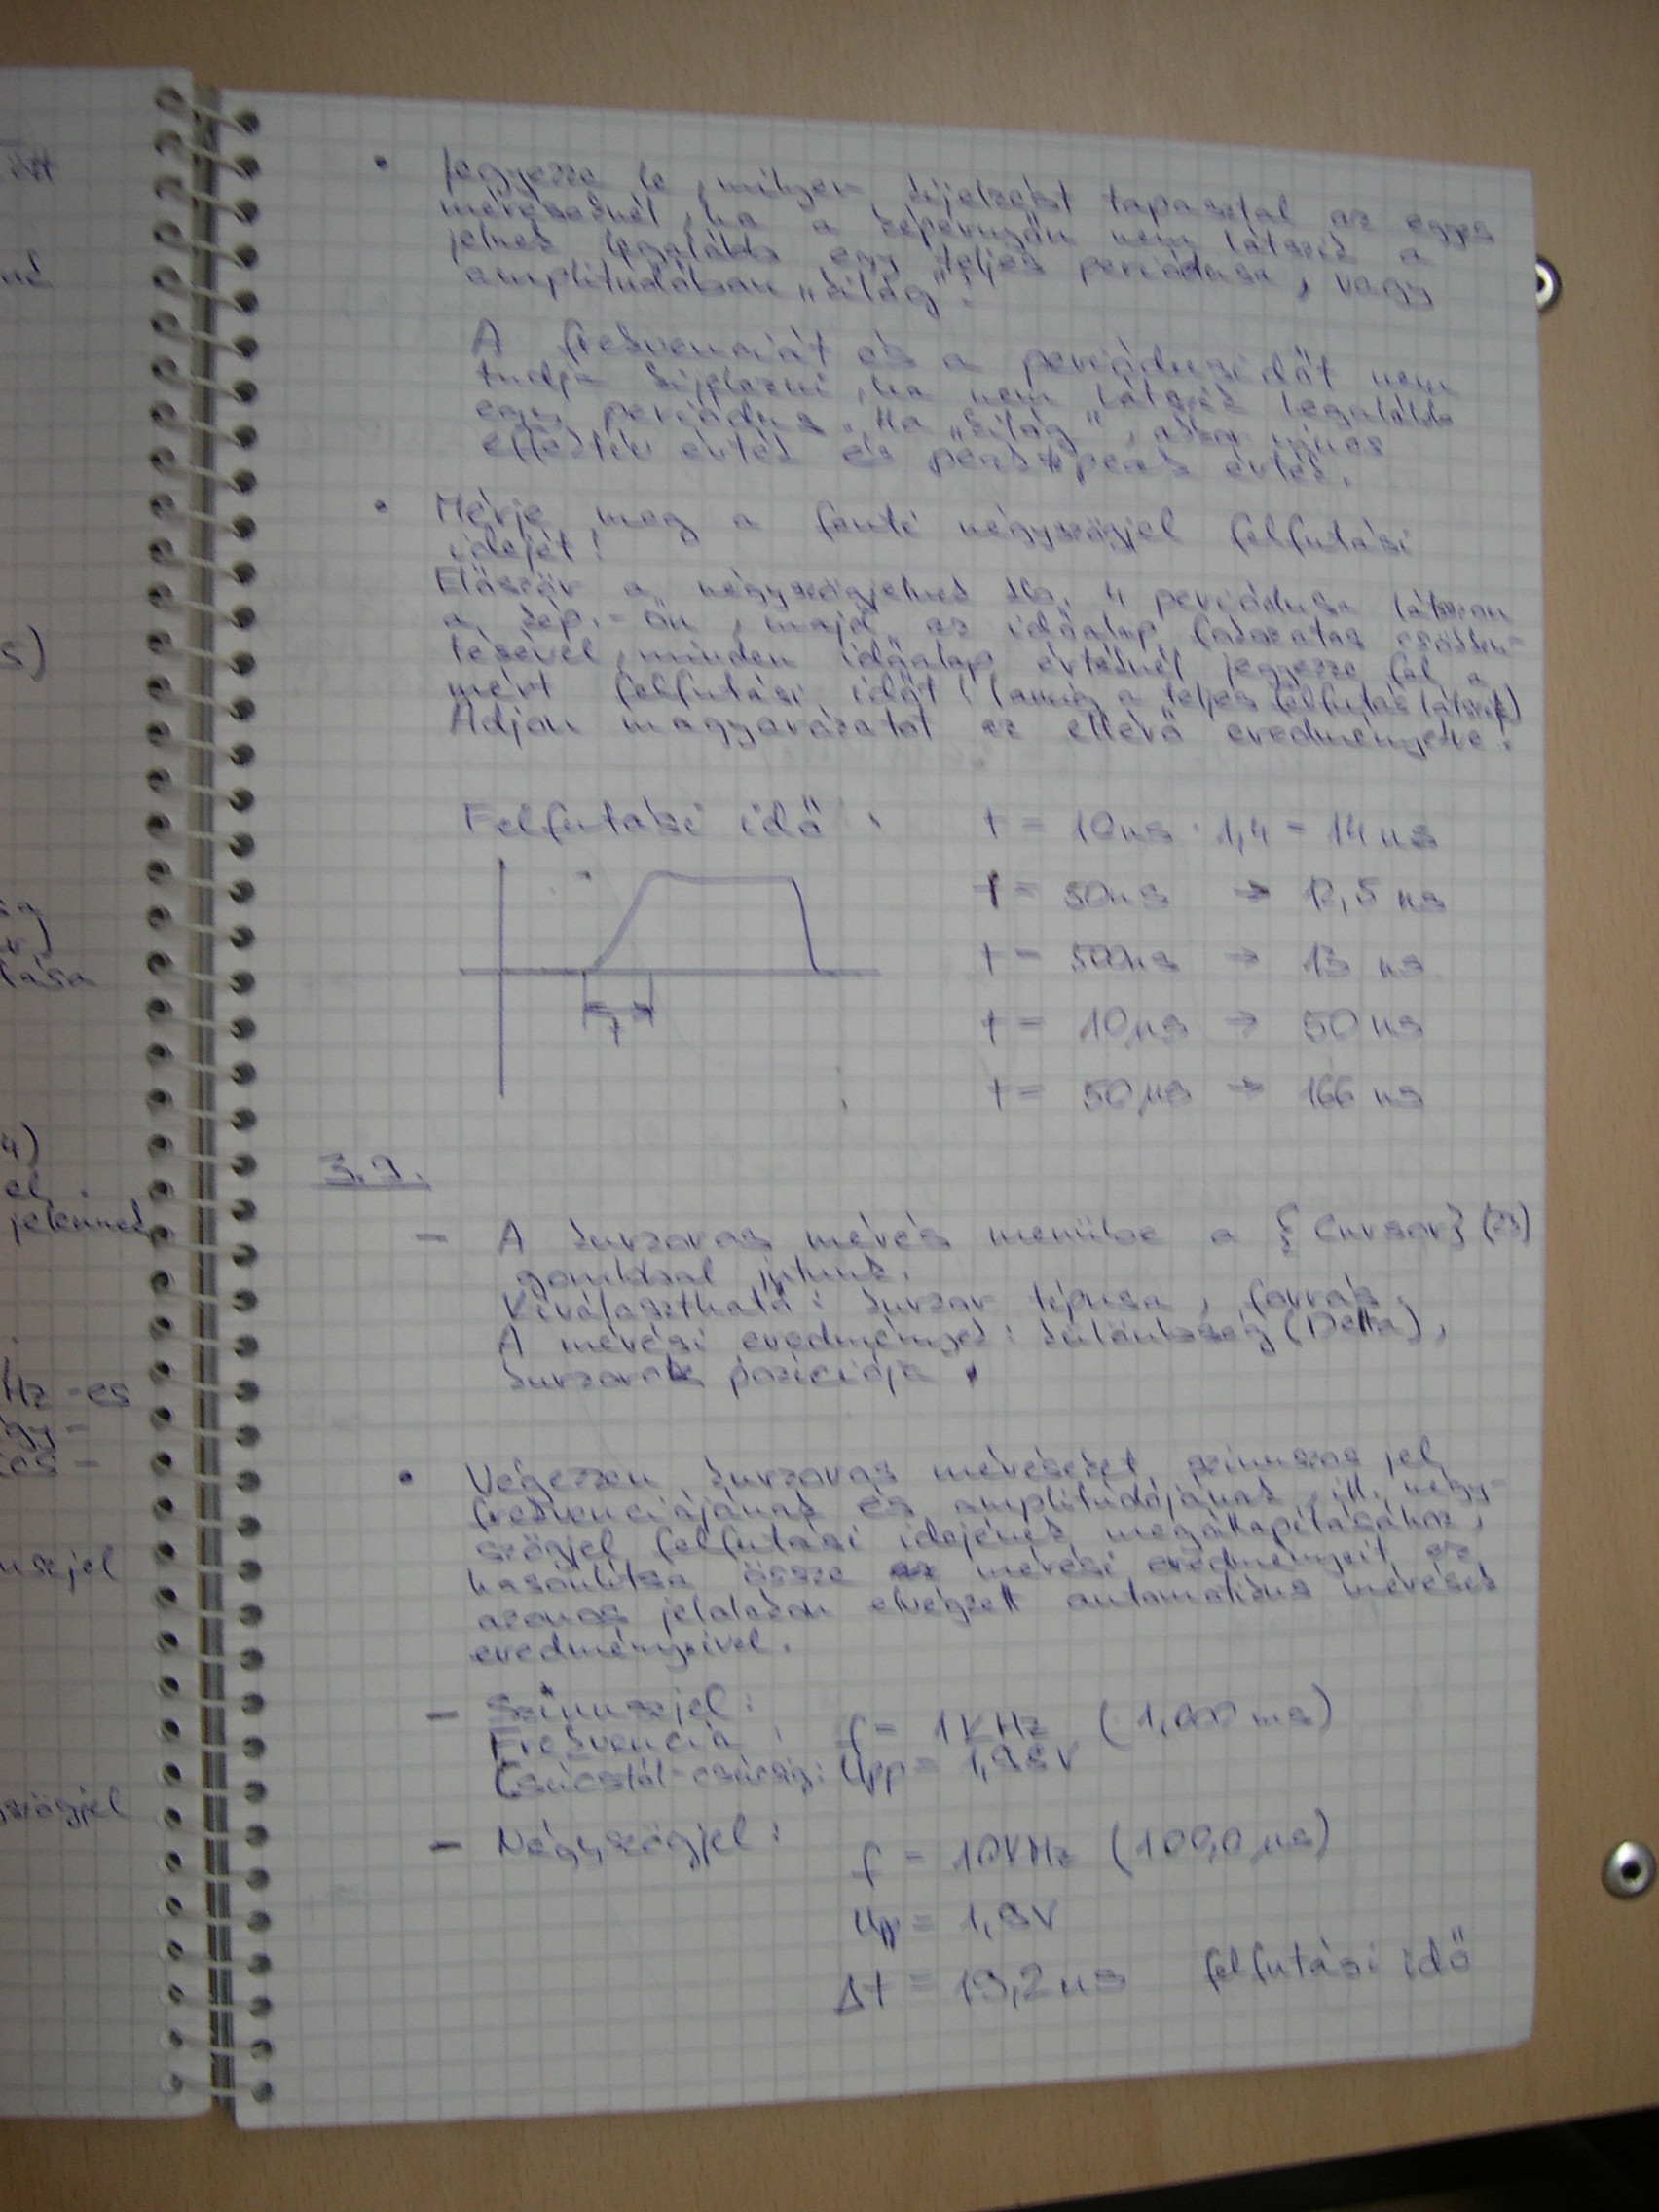 • Jegyezze le, milyen kijelzést tapasztal az egyes
méréseknél, ha a képernyőn nem látszik a
jelnek legalább egy teljes periódusa, vagy
amplitúdóban „kilóg".
A frekvenciát és a periódusidőt nem
tudja kijelezni, ha nem látszik legalább
egy periódus. Ha „kilóg", akkor nincs
effektív érték és peak-peak érték.
• Mérje meg a fenti négyszögjel felfutási
idejét!
Először a négyszögjelnek kb. 4 periódusa látsszon
a kép.-ön, majd az időalap fokozatos csökken-
tésével, minden időalap értéknél jegyezze fel a
mért felfutási időt! (amíg a teljes felfutás látszik)
Adjon magyarázatot az eltérő eredményekre!
Felfutási idő: t = 10ns · 1,4 = 14 ns
t = 50ns → 12,5 ns
t = 500ns → 13 ns
t = 10µs → 50 ns
t = 50µs → 166 ns
t
3.9.
– A kurzoros mérés menübe a {Cursor} (23)
gombbal jutunk.
Kiválasztható: kurzor típusa, forrás.
A mérési eredmények: különbség (Delta),
kurzorok pozíciója.
• Végezzen kurzoros méréseket, szinuszos jel
frekvenciájának és amplitúdójának, ill. négy-
szögjel felfutási idejének megállapításához,
hasonlítsa össze mérési eredményeit az
azonos jelalakon elvégzett automatikus mérések
eredményeivel.
– Szinuszjel:
Frekvencia: f = 1kHz (1,000 ms)
Csúcstól-csúcsig: Upp = 1,98V
– Négyszögjel:
f = 10kHz (100,0 µs)
Upp = 1,9V
Δt = 19,2ns felfutási idő
né
s)
lása
4)
el
jelennek
Hz-es
négy-
nuszjel
szögjel